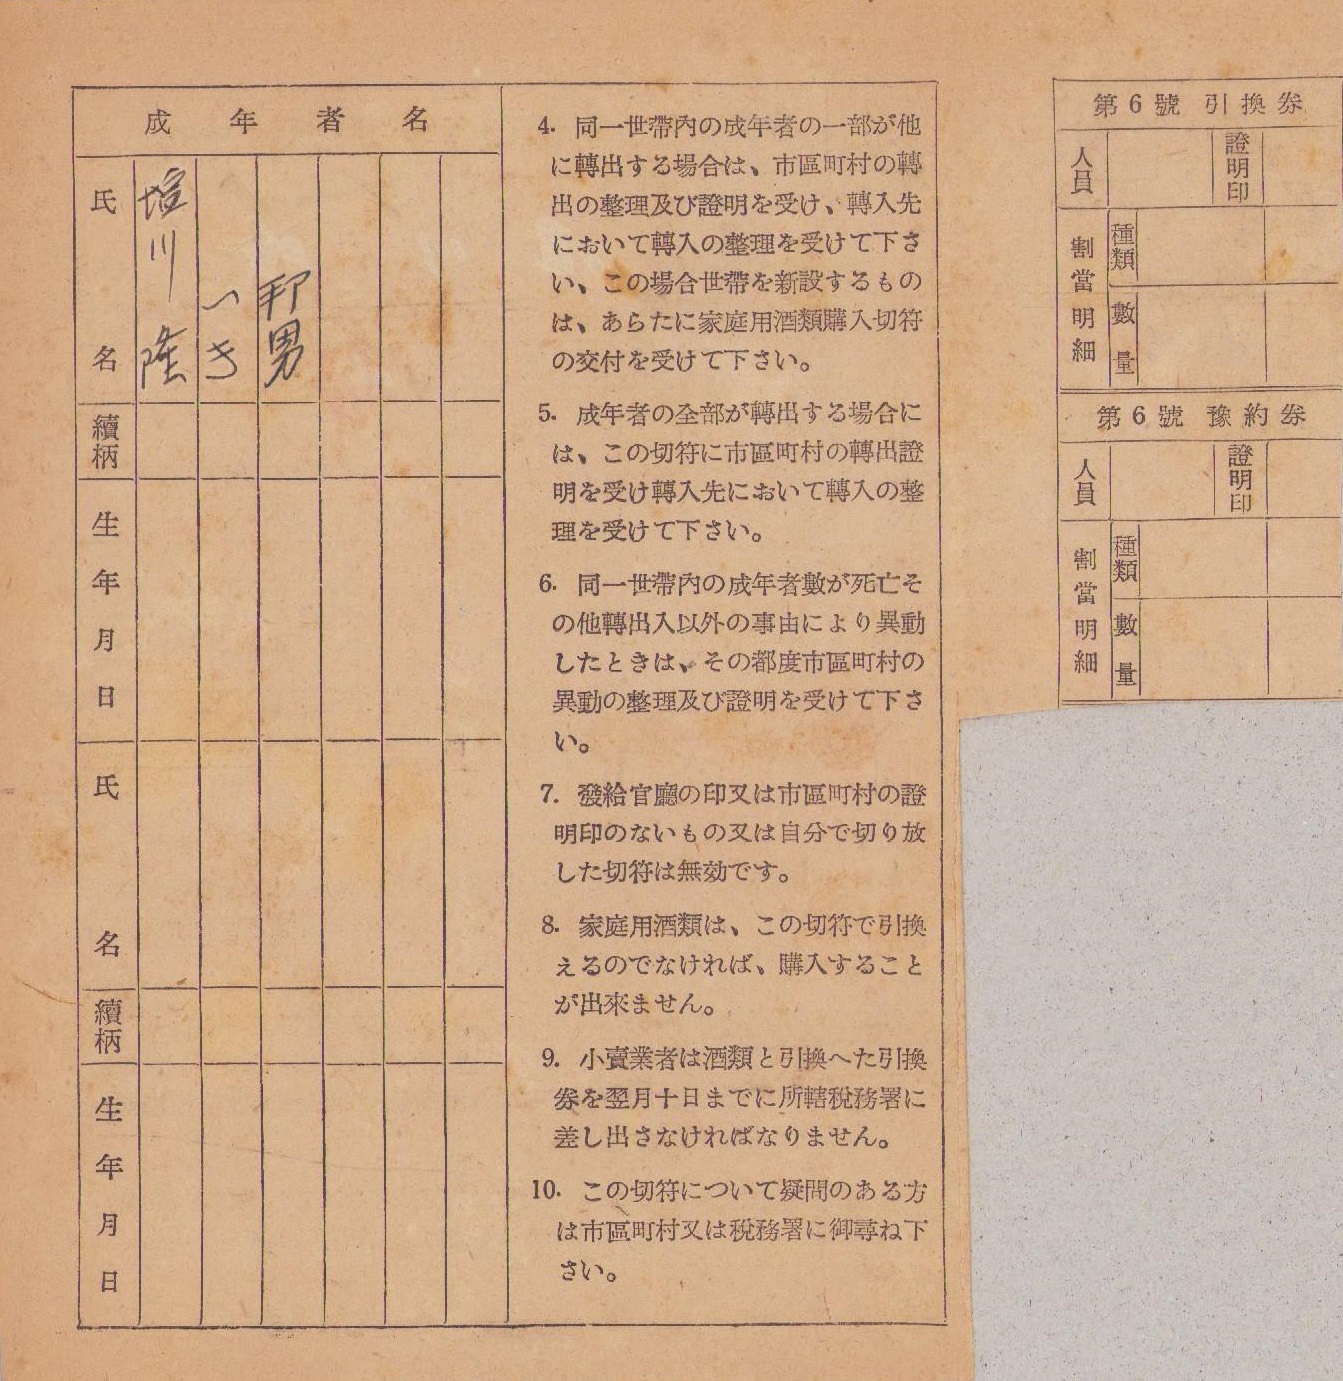 成年者名
氏名
川 隆
つき
邦男
續柄
生年月日
氏名
續柄
生年月日
4. 同一世帶內の成年者の一部が他
に轉出する場合は、市區町村の轉
出の整理及び證明を受け、轉入先
において轉入の整理を受けて下さ
い、この場合世帶を新設するもの
は、あらたに家庭用酒類購入切符
の交付を受けて下さい。
5. 成年者の全部が轉出する場合に
は、この切符に市區町村の轉出證
明を受け轉入先において轉入の整
理を受けて下さい。
6. 同一世帶內の成年者數が死亡そ
の他轉出入以外の事由により異動
したときは、その都度市區町村の
異動の整理及び證明を受けて下さ
い。
7. 發給官廳の印又は市區町村の證
明印のないもの又は自分で切り放
した切符は無効です。
8. 家庭用酒類は、この切符で引換
えるのでなければ、購入すること
が出來ません。
9. 小賣業者は酒類と引換へた引換
券を翌月十日までに所轄稅務署に
差し出さなければなりません。
10. この切符について疑問のある方
は市區町村又は稅務署に御尋ね下
さい。
第6號 引換券
人員
證明印
割當明細
種類
數量
第6號 豫約券
人員
證明印
割當明細
種類
數量